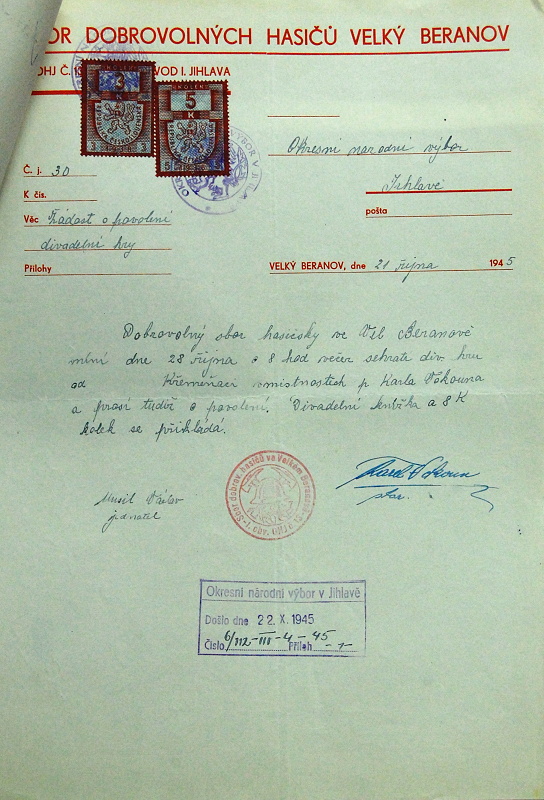 OR DOBROVOLNÝCH HASIČŮ VELKÝ BERANOV
OHJ Č. VOD I. JIHLAVA
3
K
3 3
KOLEK
5
K
5
Okresní národní výbor
Č. j. 30
Jihlavě
K čís.
pošta
Věc Žádost o povolení
divadelní hry
Přílohy
VELKÝ BERANOV, dne 21 října 1945
Dobrovolný sbor hasičský ve Vel Beranově
míní dne 28 října o 8 hod večer sehráti div. hru
od Křemeňáci v místnostech p Karla Vokouna
a prosí tudíž o povolení. Divadelní knížka a 8 K
kolek se přikládá.
Karel Vokoun
star.
Musil Václav
jednatel
Sbor dobrov. hasičů ve Velkém Beranově
Okresní národní výbor v Jihlavě
Došlo dne 22. X. 1945
Číslo 6/112-III-4-45 Příloh -1-